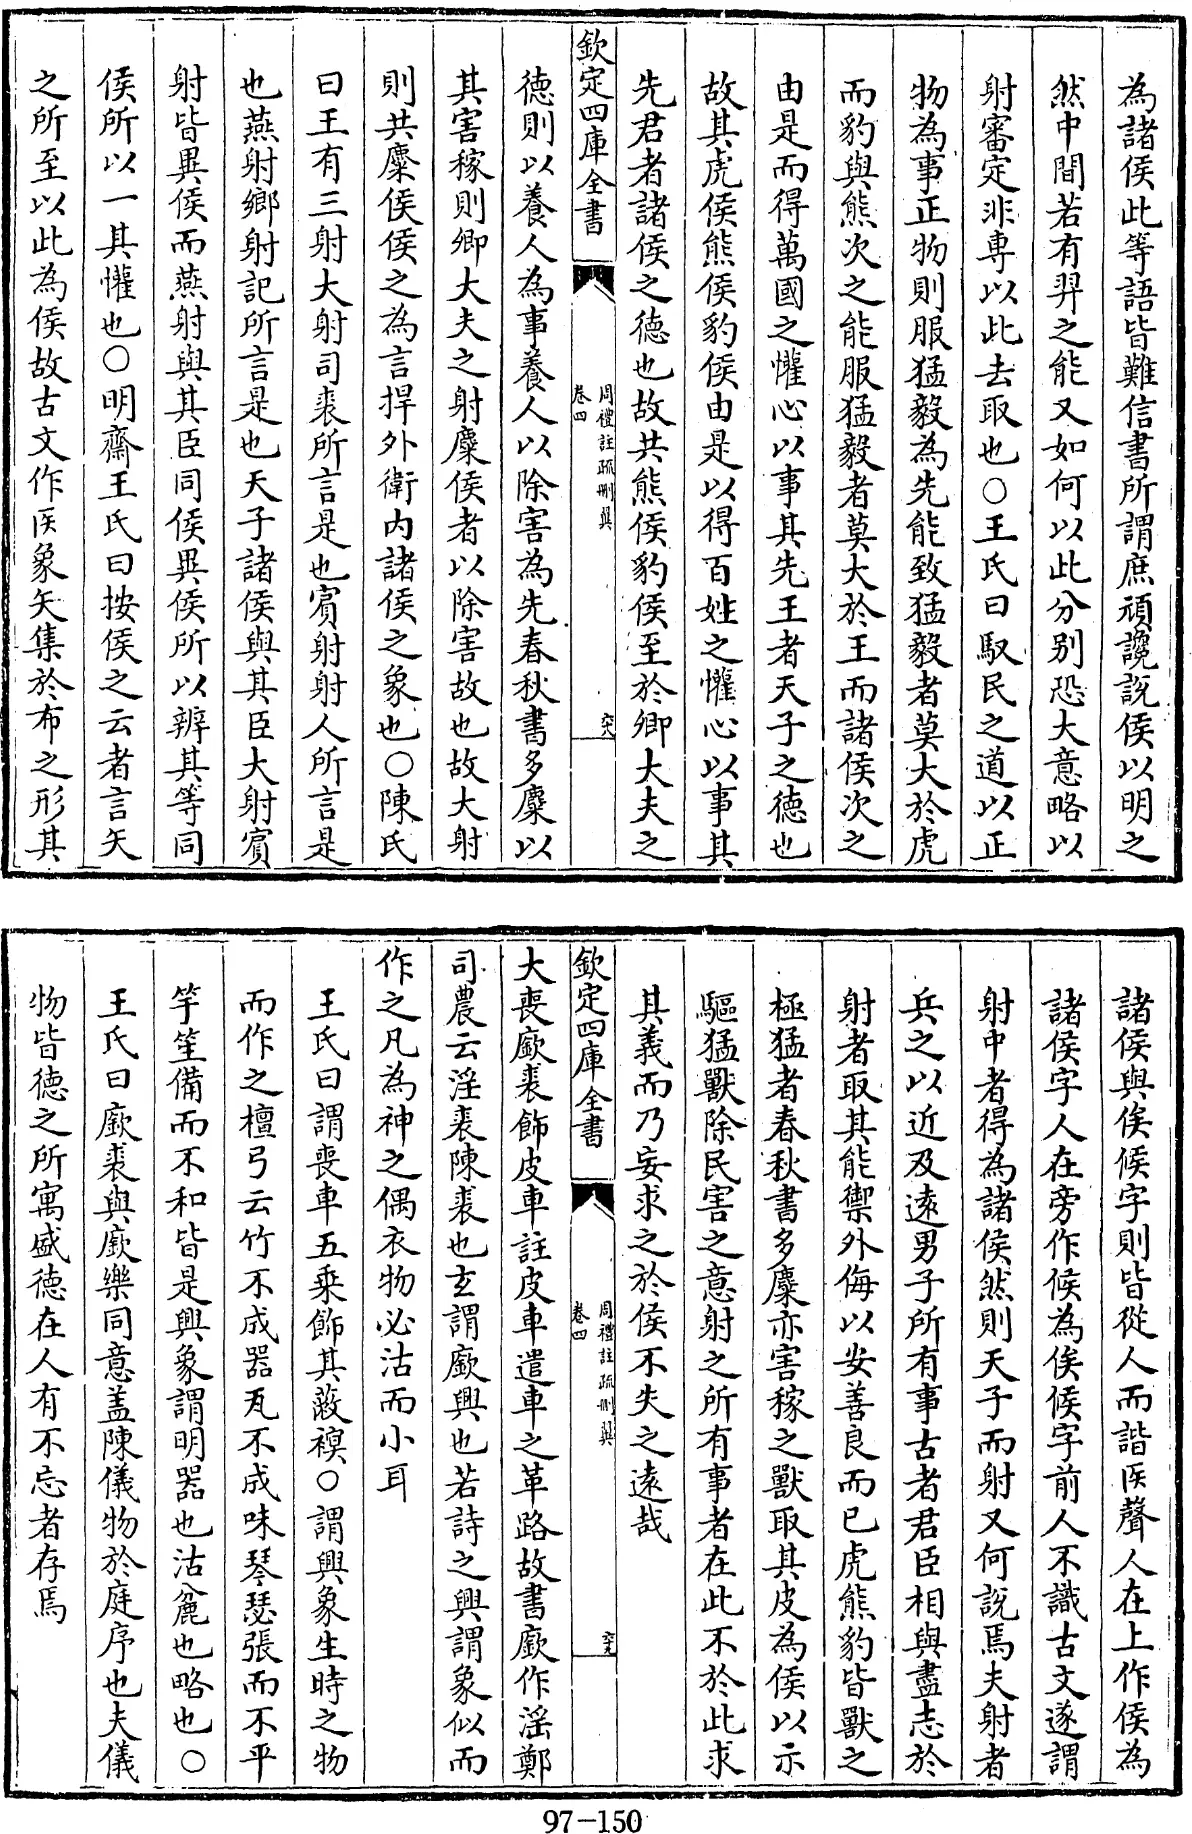 為諸侯此等語皆難信書所謂庶頑讒説侯以明之
然中間若有羿之能又如何以此分别恐大意略以
射審定非専以此去取也○王氏曰馭民之道以正
物為事正物則服猛毅為先能致猛毅者莫大於虎
而豹與熊次之能服猛毅者莫大於王而諸侯次之
由是而得萬國之懽心以事其先王者天子之德也
故其虎侯熊侯豹侯由是以得百姓之懽心以事其
先君者諸侯之德也故共熊侯豹侯至於卿大夫之
欽定四庫全書
周禮註疏刪翼
卷四
德則以養人為事養人以除害為先春秋書多麋以
其害稼則卿大夫之射麋侯者以除害故也故大射
則共麋侯侯之為言捍外衛内諸侯之象也○陳氏
曰王有三射大射司裘所言是也賓射射人所言是
也燕射鄉射記所言是也天子諸侯與其臣大射賓
射皆異侯而燕射與其臣同侯異侯所以辨其等同
侯所以一其懽也○明齋王氏曰按侯之云者言矢
之所至以此為侯故古文作矦象矢集於布之形其
諸侯與俟候字則皆從人而諧矦聲人在上作侯為
諸侯字人在旁作候為俟候字前人不識古文遂謂
射中者得為諸侯然則天子而射又何說焉夫射者
兵之以近及遠男子所有事古者君臣相與盡志於
射者取其能禦外侮以安善良而已虎熊豹皆獸之
極猛者春秋書多麋亦害稼之獸取其皮為侯以示
驅猛獸除民害之意射之所有事者在此不於此求
其義而乃妄求之於侯不失之遠哉
欽定四庫全書
周禮註疏刪翼
卷四
大喪廞裘飾皮車註皮車遣車之革路故書廞作淫鄭
司農云淫裘陳裘也玄謂廞興也若詩之興謂象似而
作之凡為神之偶衣物必沽而小耳
王氏曰謂喪車五乘飾其蔽𧜀○謂興象生時之物
而作之檀弓云竹不成器瓦不成味琴瑟張而不平
竽笙備而不和皆是興象謂明器也沽麄也略也○
王氏曰廞裘與廞樂同意盖陳儀物於庭序也夫儀
物皆德之所寓盛德在人有不忘者存焉
97-150